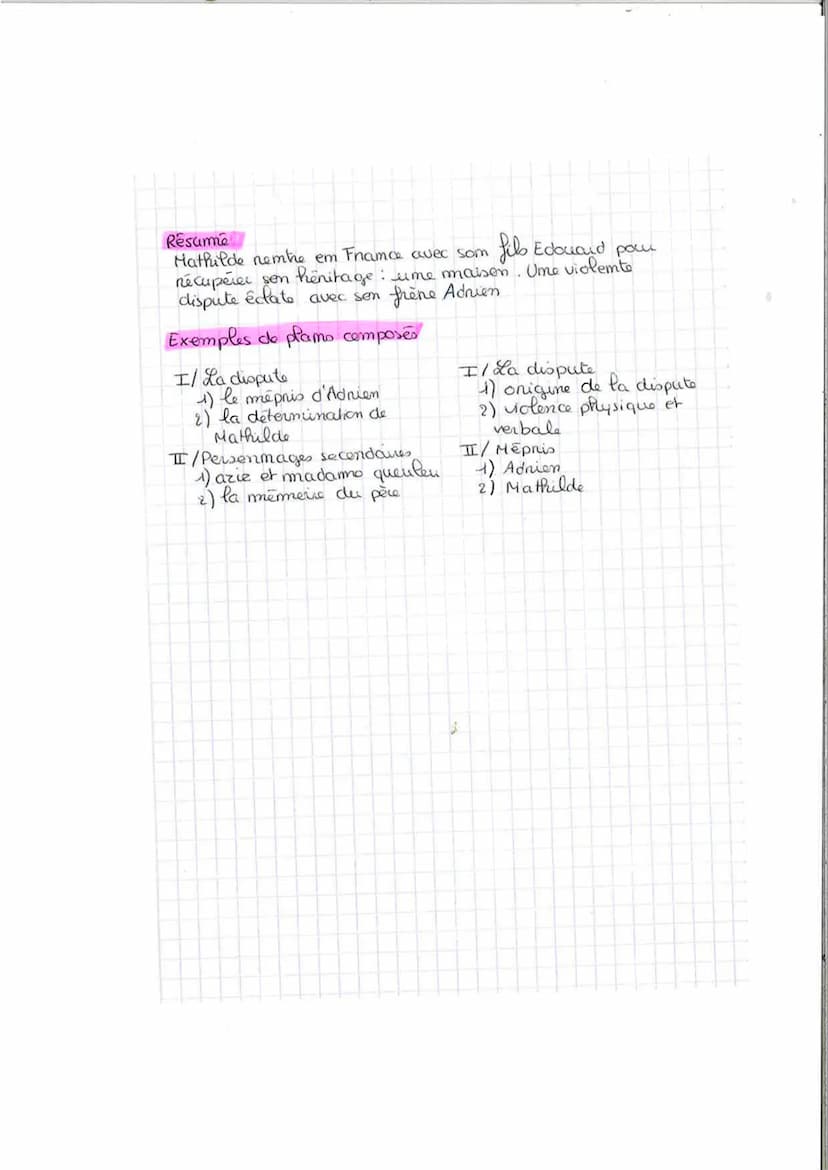 Résumé
Mathilde rentre en France avec son fils Edouard pour
récupérer son héritage : une maison. Une violente
dispute éclate avec son frère Adrien
Exemples de plans composés
I/ La dispute
1) le mépris d'Adrien
2) la détermination de
Mathilde
II/Personnages secondaires
1) azie et madame queuleu
2) la mémoire du père
I/ La dispute
1) origine de la dispute
2) violence physique et
verbale
II/ Mépris
1) Adrien
2) Mathilde